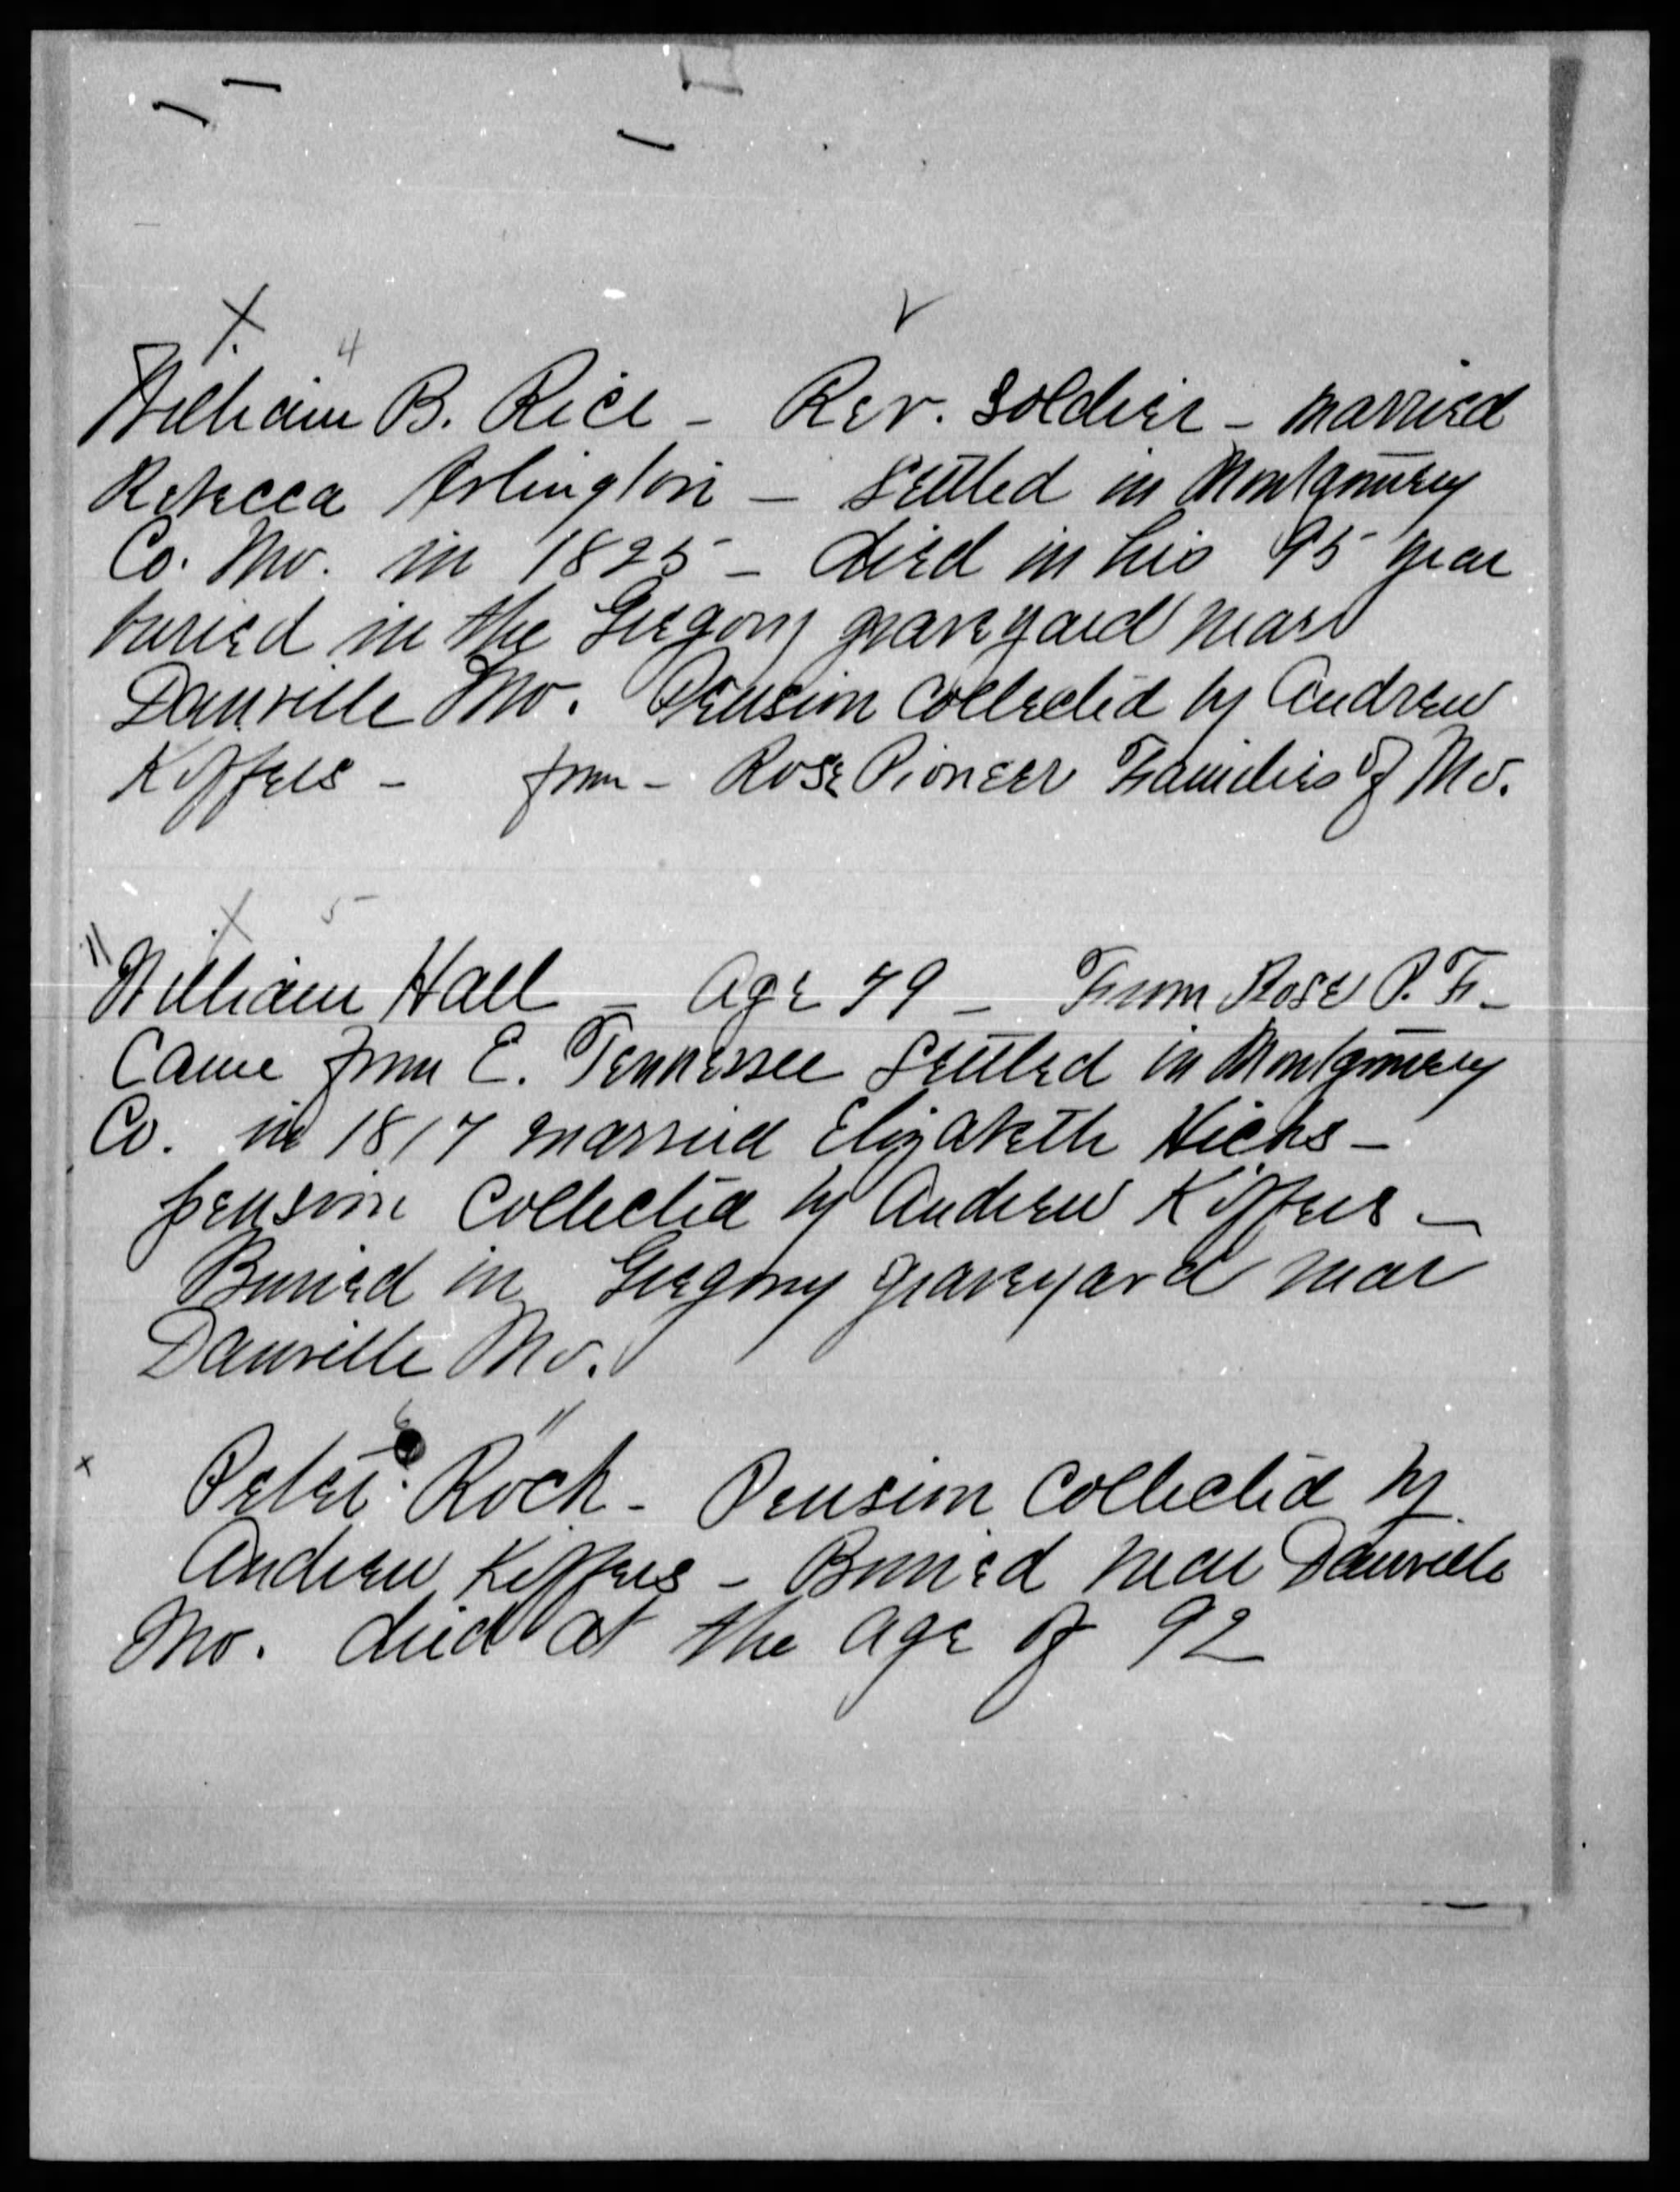 X 4 ✓
William B. Rice - Rev. Soldier - married
Rebecca Arlington - settled in Montgomery
Co. Mo. in 1825 - died in his 95 year
buried in the Gregory graveyard near
Danville Mo. Pension collected by Andrew
Kiffers - from - Rose Pioneer Families of Mo.
X 5
" William Hall - Age 79 - From Rose P. F. -
Came from E. Tennessee settled in Montgomery
Co. in 1817 married Elizabeth Hicks -
pension collected by Andrew Kiffers -
Buried in Gregory graveyard near
Danville Mo.
6 "
x Peter Rock - Pension collected by
Andrew Kiffers - Buried near Danville
Mo. died at the age of 92